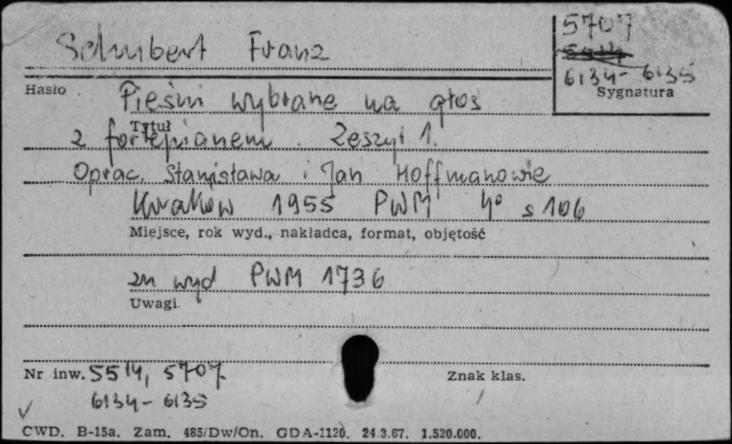 Schubert Franz
5707
6134-6135
Hasło
Sygnatura
Pieśni wybrane na głos
Tytuł
z fortepianem. Zeszyt 1.
Oprac. Stanisława i Jan Hoffmanowie
Kraków 1955 PWM 4° s 106
Miejsce, rok wyd., nakładca, format, objętość
zn wyd PWM 1736
Uwagi
Nr inw. 5514, 5707.
6134-6135
Znak klas.
CWD. B-15a. Zam. 485/Dw/On. GDA-1120. 24.3.67. 1.520.000.